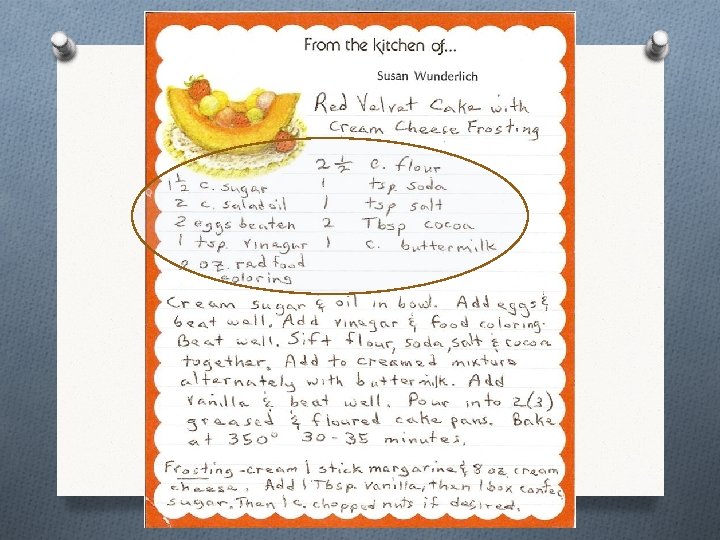 From the kitchen of...
Susan Wunderlich
Red Velvet Cake with
Cream Cheese Frosting
2 1/2 c. flour
1 1/2 c. sugar 1 tsp soda
2 c. salad oil 1 tsp salt
2 eggs beaten 2 Tbsp cocoa
1 tsp. vinegar 1 c. buttermilk
2 oz. red food
coloring
Cream sugar & oil in bowl. Add eggs &
beat well. Add vinegar & food coloring.
Beat well. Sift flour, soda, salt & cocoa
together. Add to creamed mixture
alternately with buttermilk. Add
vanilla & beat well. Pour into 2(3)
greased & floured cake pans. Bake
at 350° 30-35 minutes.
Frosting - cream 1 stick margarine & 8 oz. cream
cheese. Add 1 Tbsp vanilla, then 1 box confec
sugar. Then 1 c. chopped nuts if desired.